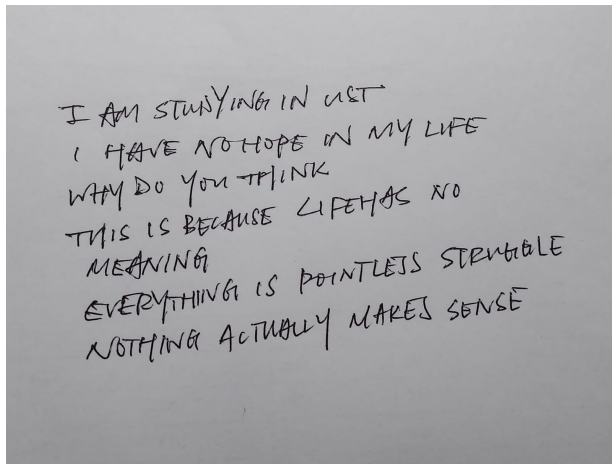 I AM STUDYING IN UST
I HAVE NO HOPE IN MY LIFE
WHY DO YOU THINK
THIS IS BECAUSE LIFE HAS NO
MEANING
EVERYTHING IS POINTLESS STRUGGLE
NOTHING ACTUALLY MAKES SENSE